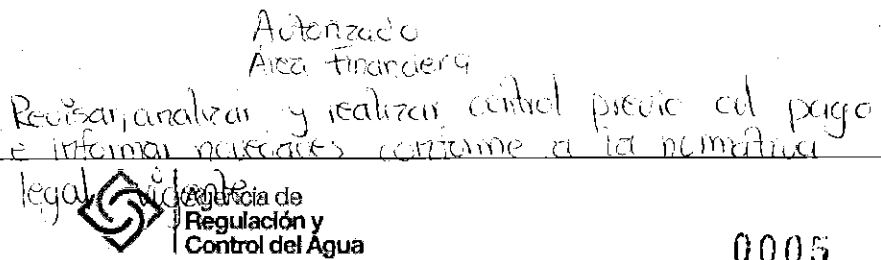 Autorizado
Área Financiera
Revisar, analizar y realizar control previo al pago
e informar novedades conforme a la normativa
legal vigente
Agencia de
Regulación y
Control del Agua
0005